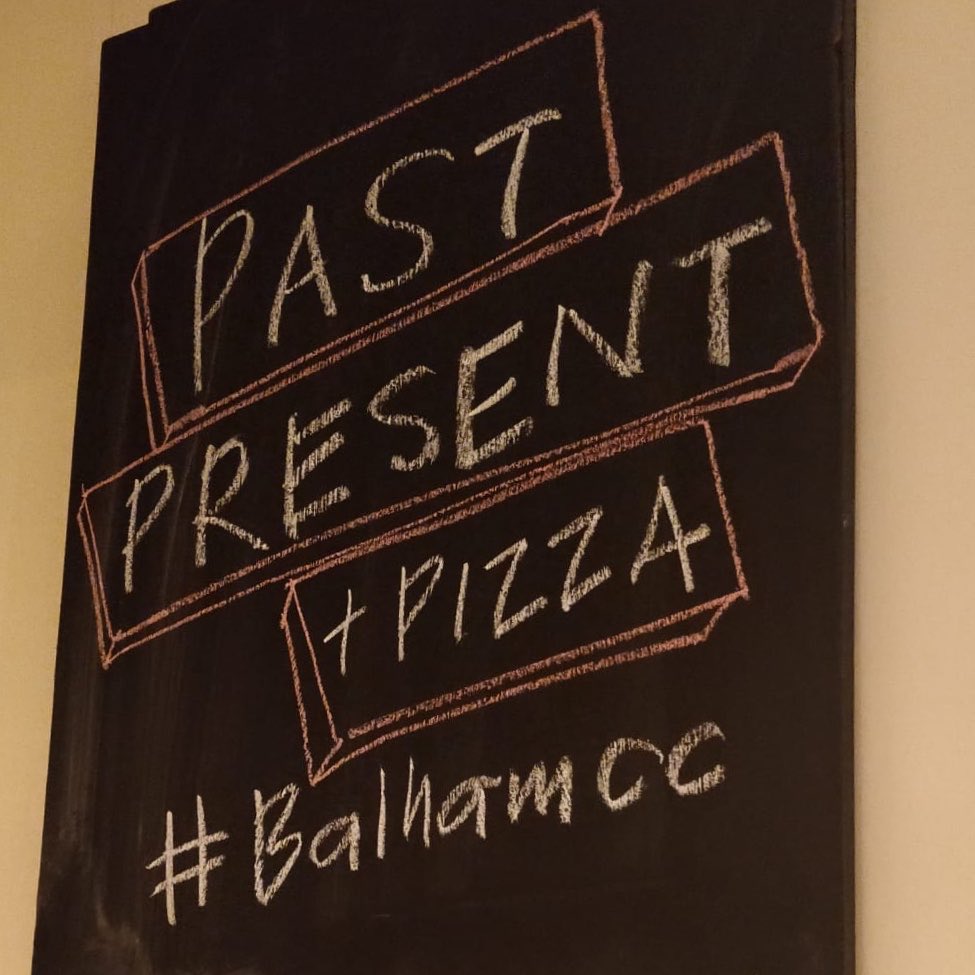 PAST
PRESENT
+ PIZZA
#Balhamcc